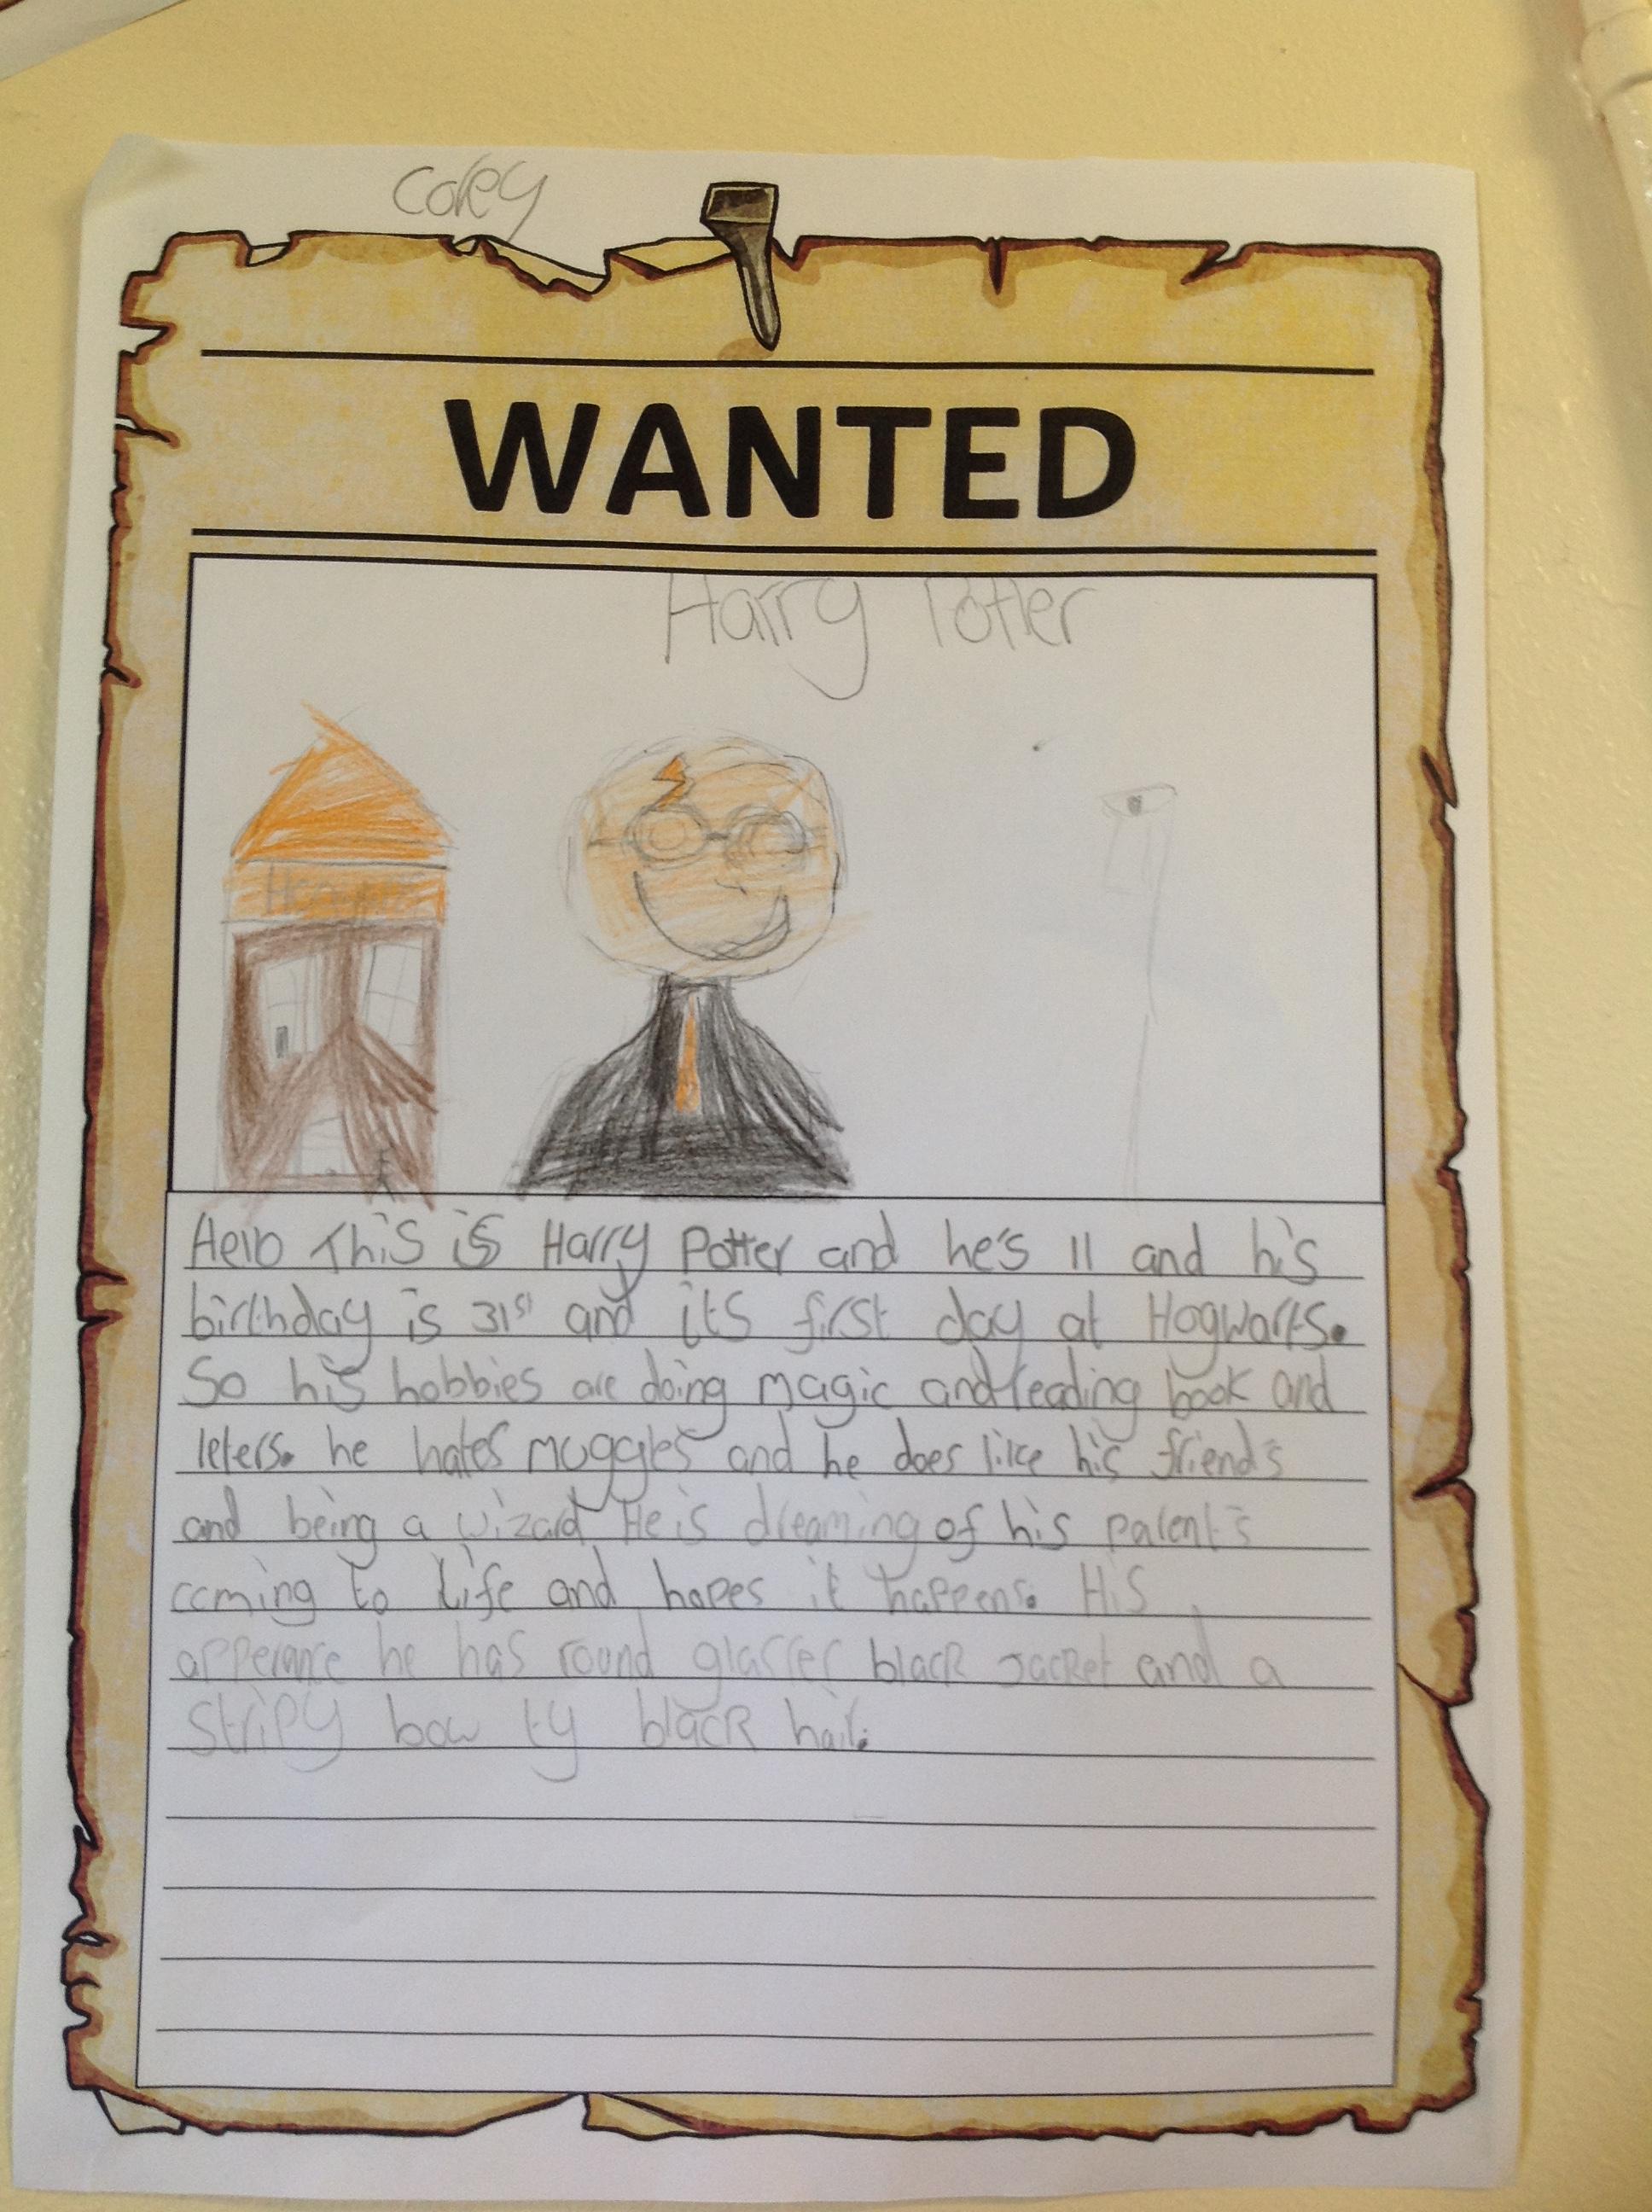 Corey
WANTED
Harry Potter
Hello This is Harry Potter and he's 11 and his
birthday is 31st and its first day at Hogwarts.
So his hobbies are doing magic and reading book and
leters. he hates muggles and he does like his friend's
and being a wizard He is dreaming of his parent's
coming to life and hopes it happens. His
apperance he has round glasses black jacket and a
stripy bow ty black hair.